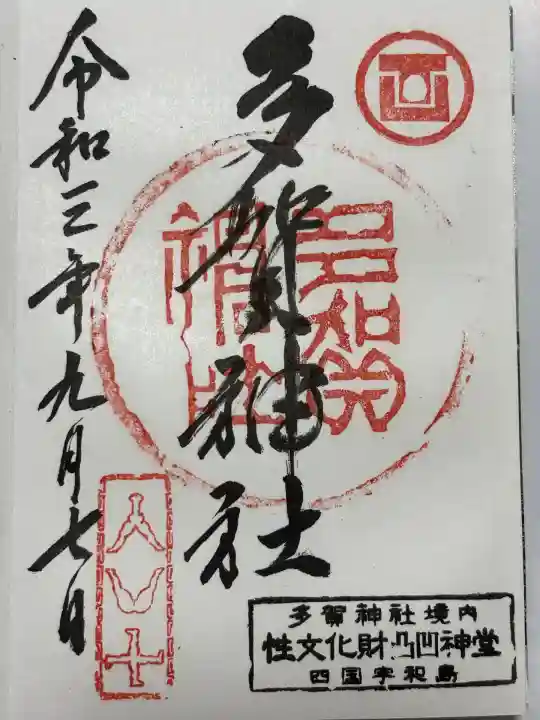 多賀神社
令和三年九月七日
多賀神社境内
性文化財凸凹神堂
四国宇和島